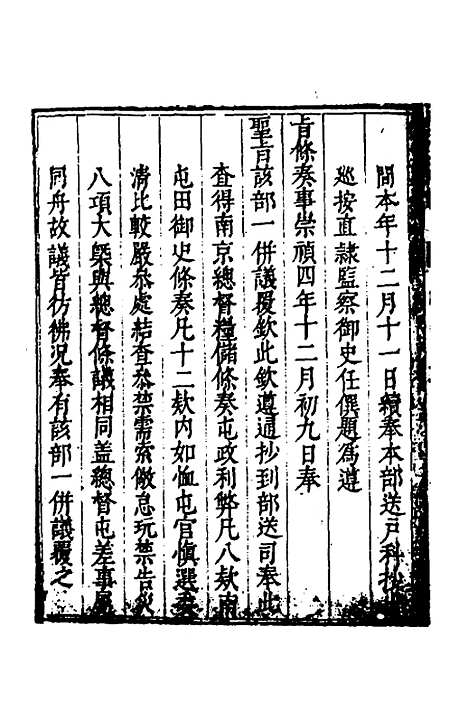 間本年十二月十一日續奉本部送戶科抄
巡按直隷監察御史任僎題為遵
旨條奏事崇禎四年十二月初九日奉
聖旨該部一併議覆欽此欽遵通抄到部送司奉此
查得南京總督糧儲條奏屯政利弊凡八欵南
屯田御史條奏凡十二欵内如恤屯官慎選委
清比較嚴叅處結查叅禁需索儆怠玩禁告災
八項大槩與總督條議相同盖總督屯差事屬
同舟故議皆彷彿况奉有該部一併議覆之